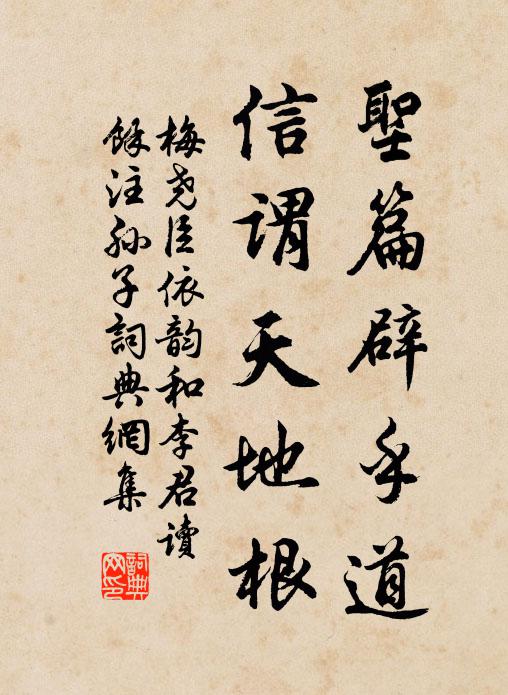 聖篇辟乎道
信谓天地根
梅尧臣依韵和李君讀
餘注孙子詞典網集
詞典
网印